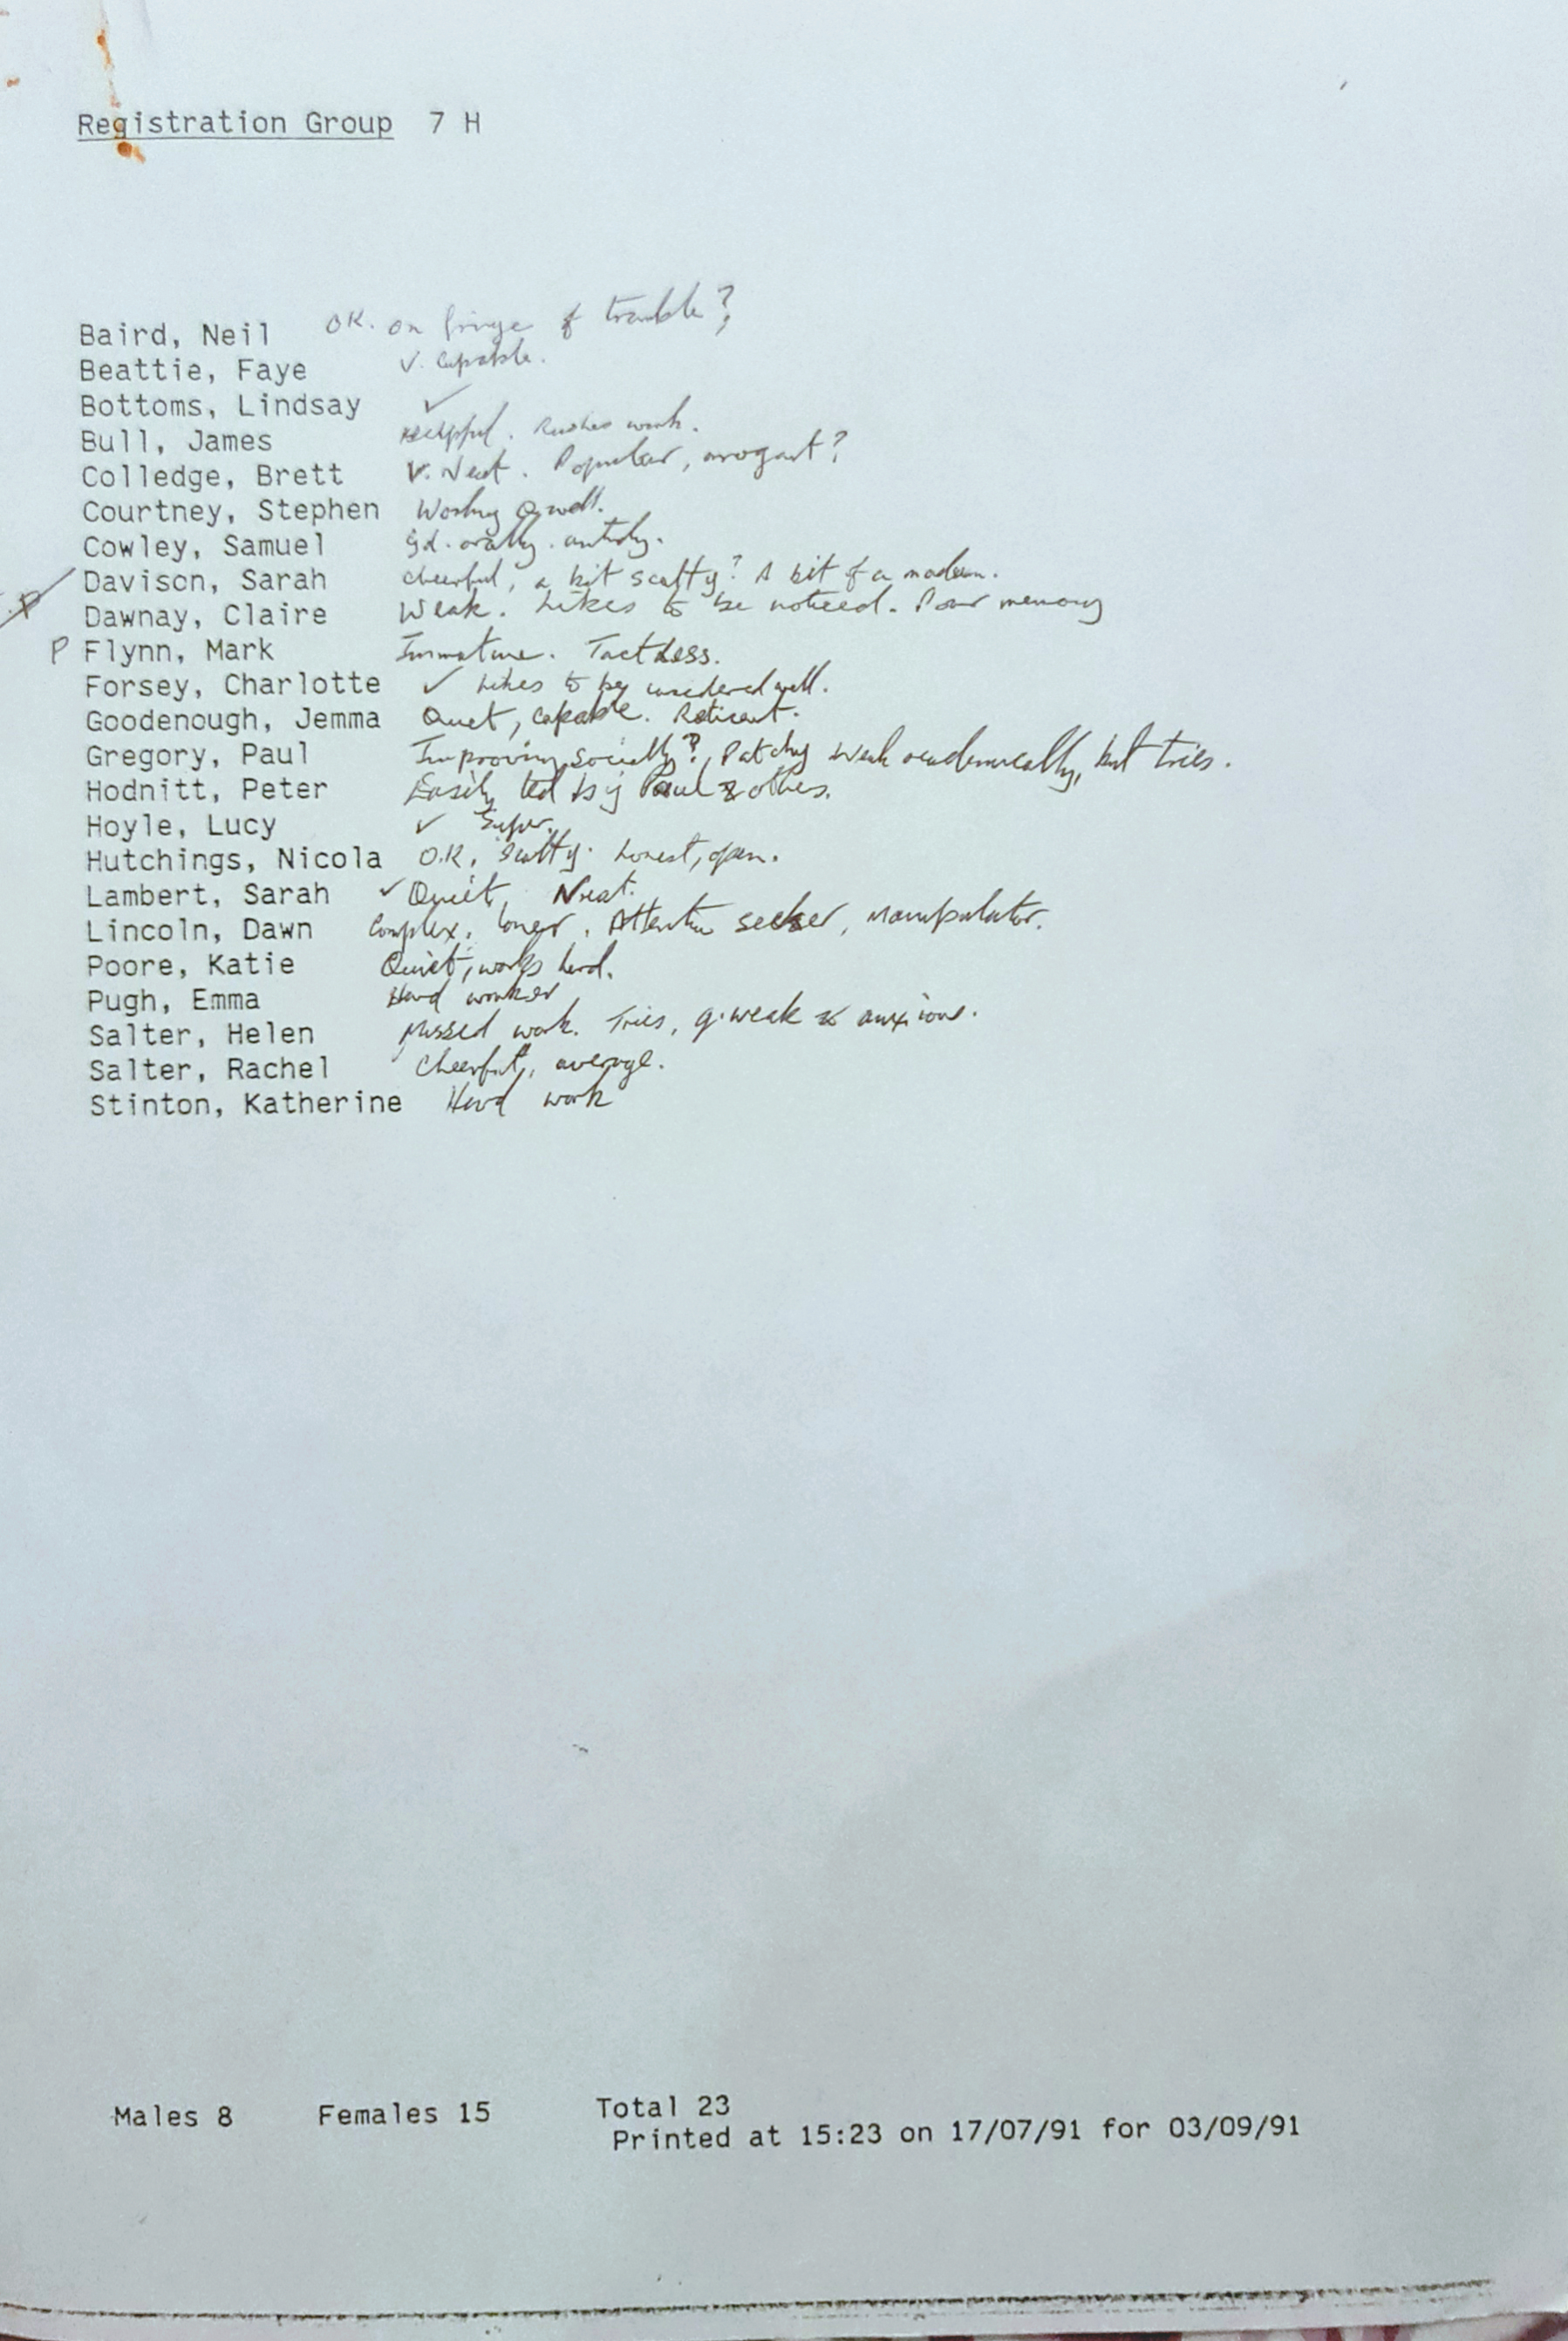 Registration Group 7 H
Baird, Neil OK. on fringe of trouble?
Beattie, Faye V. capable.
Bottoms, Lindsay ✓
Bull, James Helpful. Rushes work.
Colledge, Brett V. Neat. Popular, arrogant?
Courtney, Stephen Working well.
Cowley, Samuel Gd. orally. untidy.
Davison, Sarah Cheerful, a bit scatty? A bit of a madam.
P Dawnay, Claire Weak. Likes to be noticed. Poor memory
P Flynn, Mark Immature. Tactless.
Forsey, Charlotte ✓ Likes to be considered well.
Goodenough, Jemma Quiet, capable. Reticent.
Gregory, Paul Improving socially?, Patchy weak academically, but tries.
Hodnitt, Peter Easily led by Paul & others.
Hoyle, Lucy ✓ Super.
Hutchings, Nicola O.K, Scatty. honest, open.
Lambert, Sarah ✓ Quiet, Neat.
Lincoln, Dawn Complex, loner, Attention seeker, manipulator.
Poore, Katie Quiet, works hard.
Pugh, Emma Hard worker
Salter, Helen Missed work. Tries, q. weak & anxious.
Salter, Rachel Cheerful, average.
Stinton, Katherine Hard work
Males 8 Females 15 Total 23
Printed at 15:23 on 17/07/91 for 03/09/91